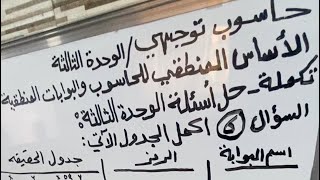 حاسوب توجيهي / الوحدة الثالثة
الأساس المنطقي للحاسوب والبوابات المنطقية
تكملة - حل أسئلة الوحدة الثالثة:
السؤال ⑥ اكمل الجدول الآتي:
اسم البوابة | الرمز | جدول الحقيقة